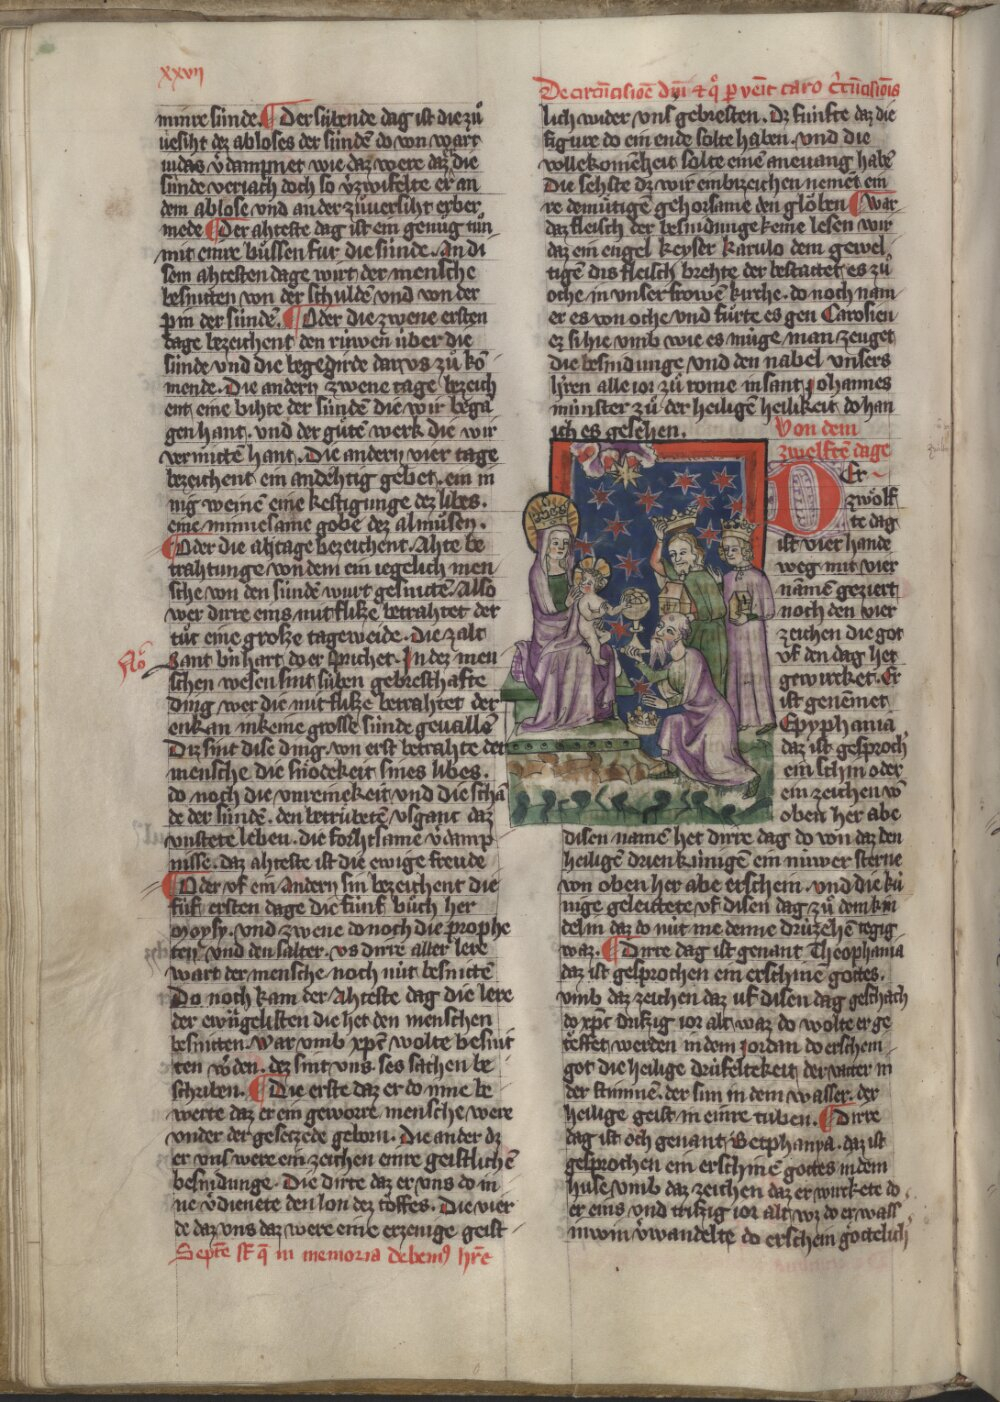 xxvij
minre sünde. Der sübende dag ist die zů
uersiht dez abloses der sündē do von wart
iudas v̾dampnet wie daz were daz die
sünde veriach doch so v̾zwifelte er an
dem ablose vnd an der zůuersiht erber
mede Der ahteste dag ist ein genůg tůn
mit einre bůssen fur die sünde. An di
sem ahtesten dage wirt der mensche
besnitten von der schuldē vnd von der
pin der sündē. Oder die zwene ersten
tage bezeichent den rúwen úber die
sünde vnd die begegirde dar vs zů kō
mende. Die andern zwene tage bezeich
ent eine bihte der sündē die wir bega
gen hant. vnd der gůten werk die wir
vermittē hant. Die andern vier tage
bezeichent ein andēhtig gebet. ein in
nig weinē eine kestigunge dez libes.
eine minnesame gobe dez almůsen.
Oder die ahtage bezeichent. Ahte be
trahtunge von dem ein iegelich men
sche von den sündē wurt gesnittē. Also
wer dirre eins mit flisze betrahtet der
tůt eine grosze tageweide. die zalt
Sant b̾nhart do er sprichet. In dez men
schen wesen sint súben gebresthafte
ding wer die mit flisze betrahtet der
enkan in keine grosse sünde geuallē
Diz sint dise ding. von erst betrahte der
mensche die snödekeit sines libes.
do noch die vnreinekeit vnd die schā
de der sündē. den betrübetē vsgant daz
vnstete leben. die forhtsame v̾damp
nisse. daz ahteste ist die ewige freude
Oder vf ein andern sin bezeichent die
fúf ersten dage die fúnf bůch her
Moysy. vnd zwene do noch die prophe
ten vnd den salter. vs dirre aller lere
wart der mensche noch nút besnittē
Do noch kam der Ahteste dag die lere
der ewāgelisten die het den menschen
besnitten. War vmb xp̄c wolte besnit
ten w̾den. dez sint vns ses sachen be
schriben. Die erste daz er do mitte be
werte daz er ein gewore mensche were
vnder der gesetzede geborn. Die ander dz
er vns were ein zeichen einre geistlichē
besnidunge. Die dirte daz er vns do in
ne v̾dienete den lon dez töffes. Die vier
de daz vns daz were eine erzenige geist
De circūcisiōe dn̄i & qͦ p̱ venit caro circūcisiōis
lich wider vns gebresten. Dz fünfte daz die
figure do ein ende solte haben. vnd die
vollekomēheit solte einē aneuang habē
Die sehste dz wir embrzeichen nemēt ein
re demůtigē gehorsame den glöben War
daz fleisch der besnidunge keme lesen wir
daz ein engel keyser karulo dem gewel
tigē dis fleisch brehte der bestattet es zů
oche in vnser frowē kirche. do noch nam
er es von oche vnd fůrte es gen Carosien
ez si hie vmb wie es müge. man zeuget
die besnidunge vnd den nabel vnsers
h̾ren alle ior zů rome in sant Johannes
münster zů der heiligē heilikeit do han
ich es gesehen.
Von dem
zwelftē dage
Der
zwölf
te dag
ist vier hande
weg mit vier
nāmē geziert
noch den vier
zeichen die got
vf den dag het
gewürcket. Er
ist genēmet
Epyphania
daz ist gesproch̾
ein schin oder
ein zeichen vō
oben her abe
disen namē het dirre dag do von daz den
heiligē drien kúnigē ein núwer sterne
von oben her abe erschein. vnd die kú
nige geleitete vf disen dag zů dem kin
delin daz do nút me denne drúzehē tegig
waz. Dirre dag ist genant Theophania
daz ist gesprochen ein erschinē gottes.
vmb daz zeichen daz vf disen dag geschach
do xp̄c driszig ior alt waz do wolte er ge
töffet werden in dem Jordan do erschein
got die heilige drúfeltekeit der vatter in
der stimmē. der sun in dem wasser. der
heilige geist in einre tuben. Dirre
dag ist öch genant Betphanya. daz ist
gesprochen ein erschinē gottes in dem
huse vmb daz zeichen daz er wurckete do
er eins vnd triszig ior alt wz do er wass̾
in win v̾wandelte do erschein göttelich
Septē st̄ q̄ in memoria debem⁹ hr̄e